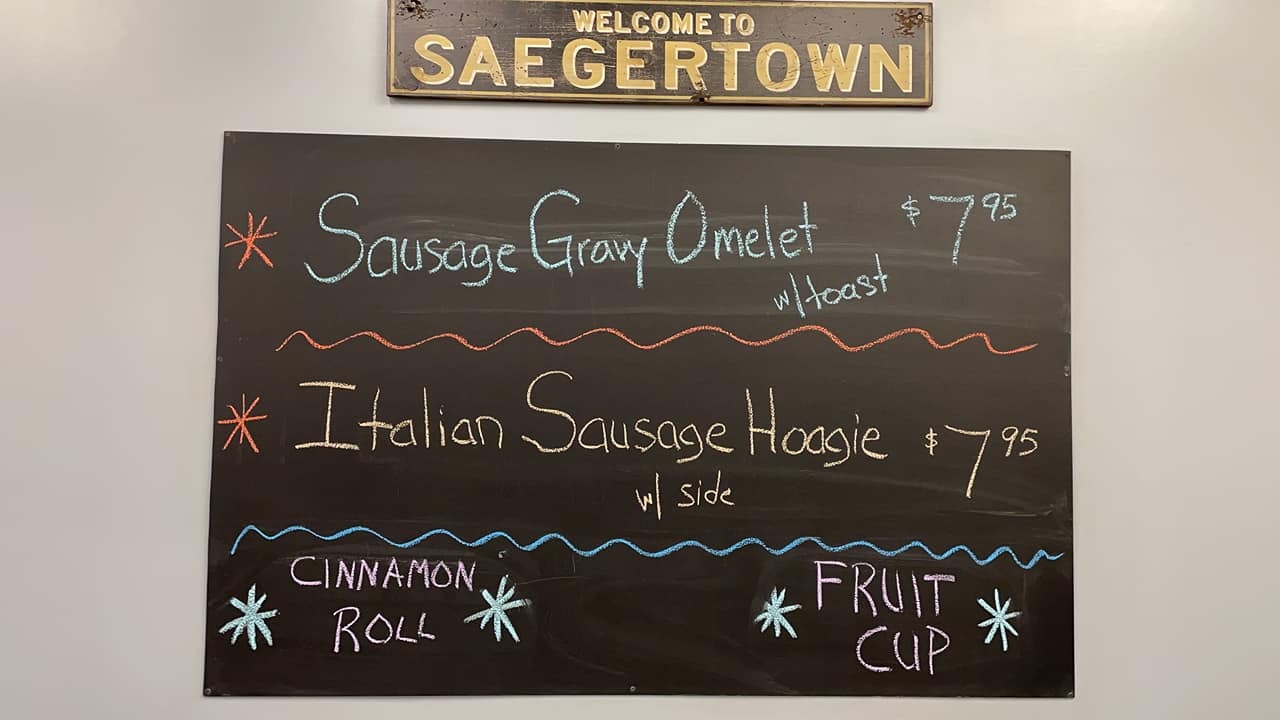 WELCOME TO
SAEGERTOWN
Sausage Gravy Omelet $7.95
w/toast
Italian Sausage Hoagie $7.95
w/ side
CINNAMON
ROLL
FRUIT
CUP